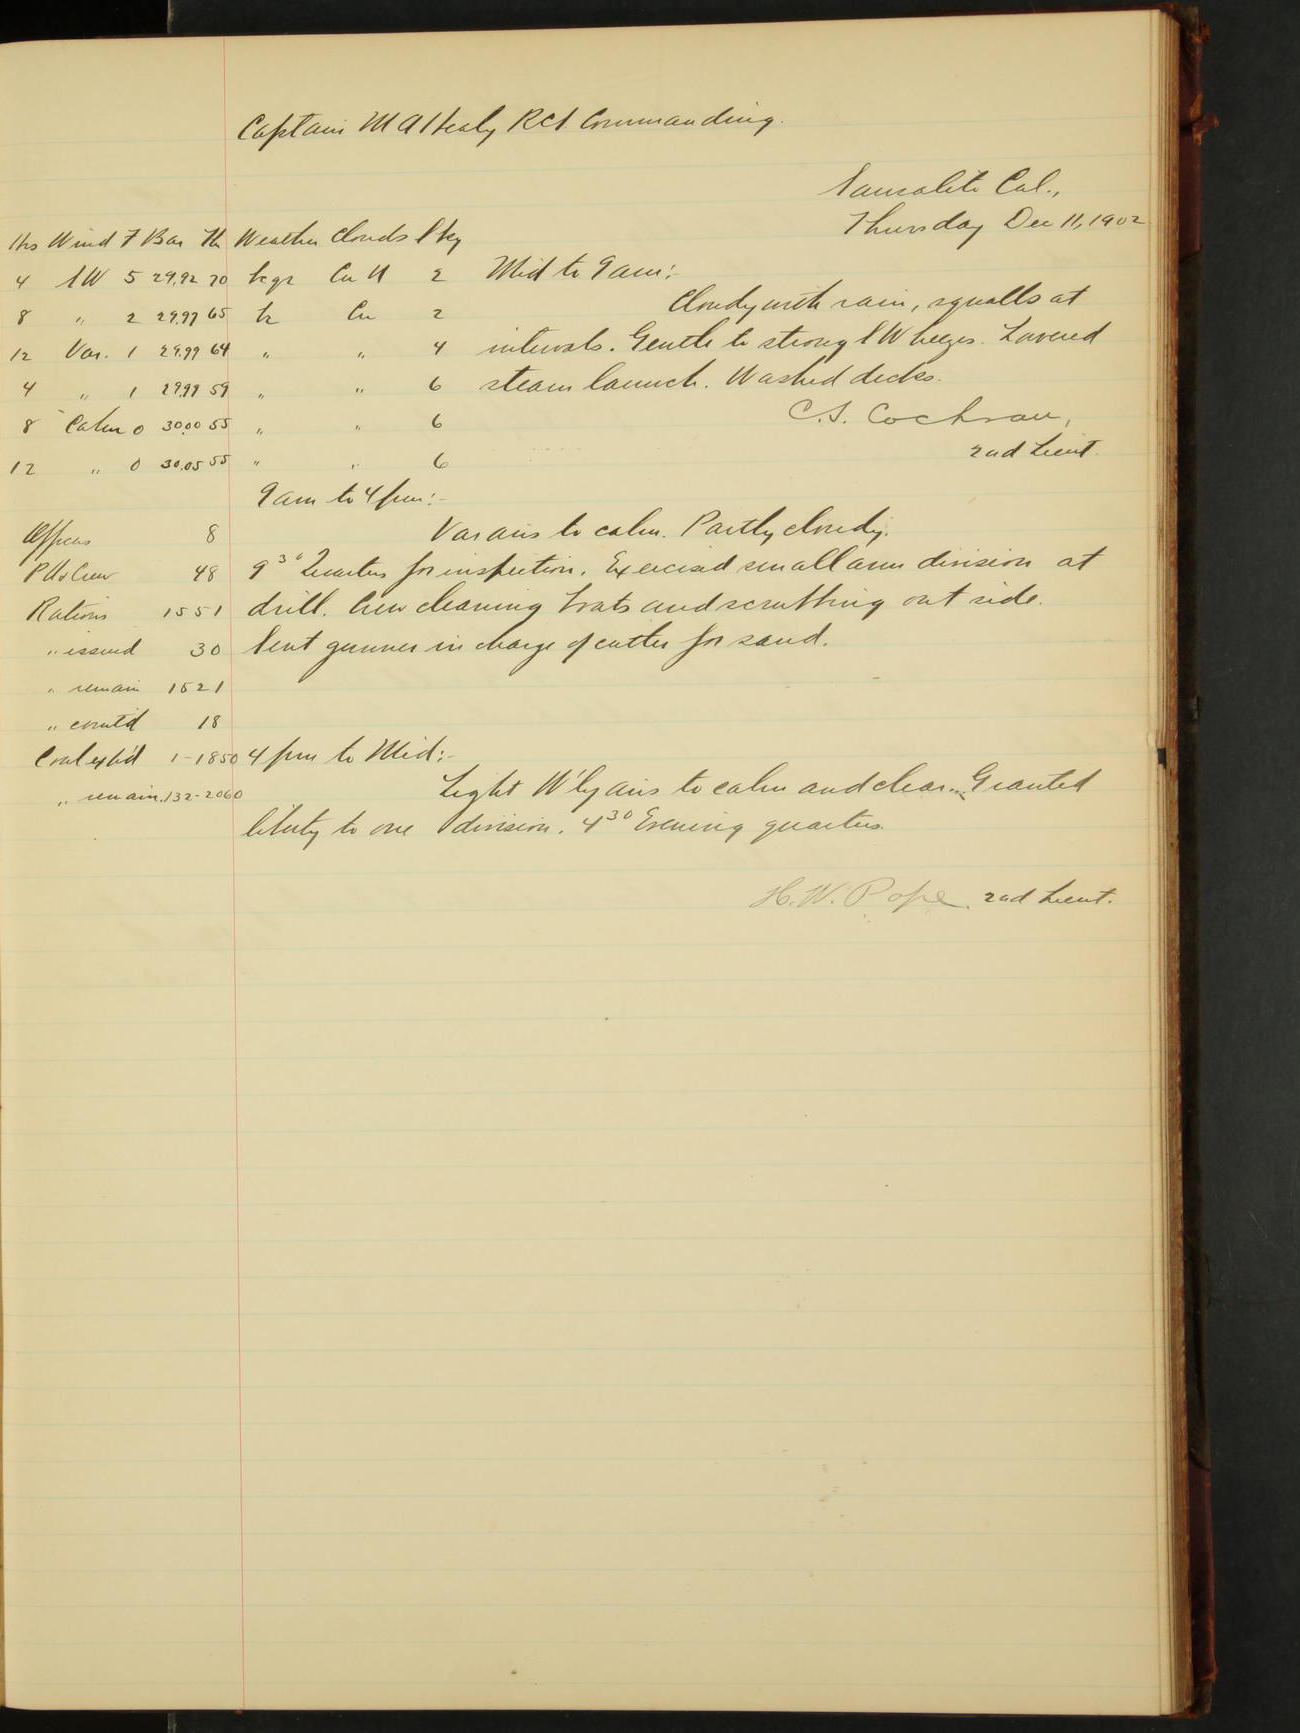 Captain M A Healy RCS Commanding.
Sausalito Cal.,
Thursday Dec 11, 1902
Hrs Wind F Bar Th Weather Clouds Sky
4 SW 5 29.92 70 Cu N 2 Mid to 9 am:-
Cloudy with rain, squalls at
8 " 2 29.97 65 Cu 2
12 Var. 1 29.99 64 " " 4 intervals. Gentle to strong SW breezes. Lowered
4 " 1 29.99 59 " " 6 steam launch. Washed decks.
8 Calm 0 30.00 55 " " 6 C.S. Cochran,
12 " 0 30.05 55 " " 6 2nd Lieut.
9 am to 4 pm:-
Officers 8 Var airs to calm. Partly cloudy.
P Os Crew 48 9³⁰ Quarters for inspection. Exercised small arm division at
Rations 1551 drill. Crew cleaning boats and scrubbing out side.
" issued 30 Sent gunner in charge of cutter for sand.
" remain 1521
" comt'd 18
Coal exp'd 1-1850 4 pm to Mid:-
" remain. 132-2060 Light W'ly airs to calm and clear. Granted
liberty to one division. 4³⁰ Evening quarters.
H. W. Pope. 2nd Lieut.